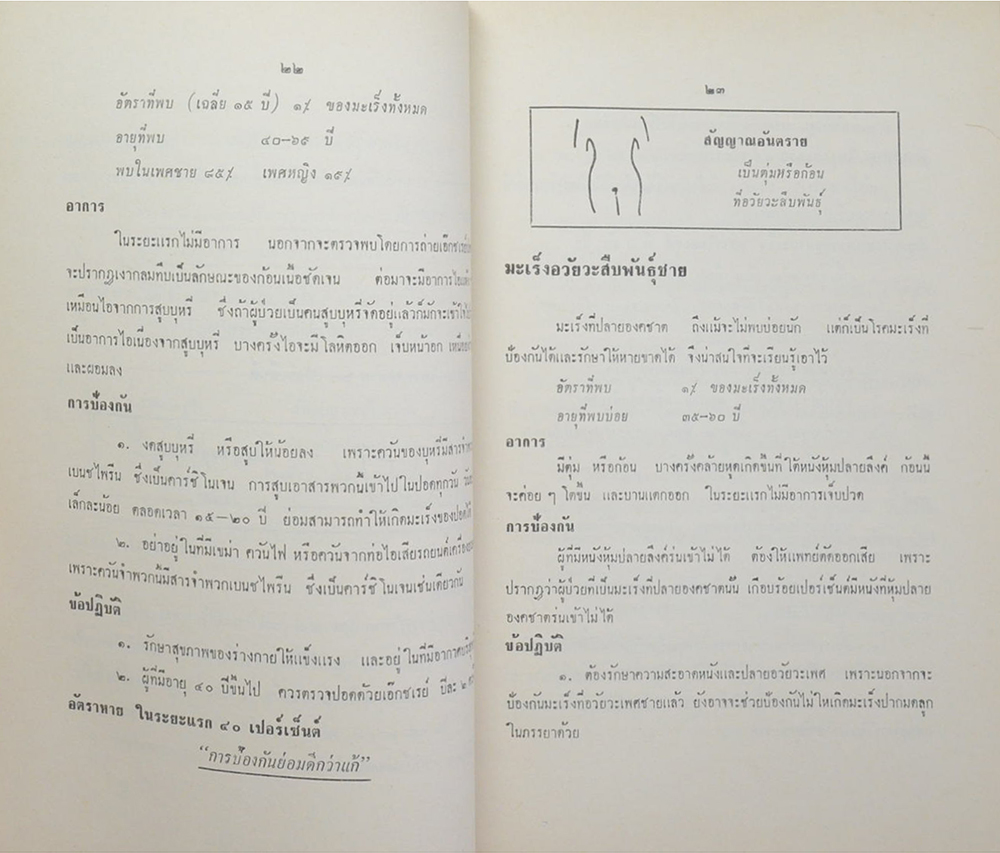 ๒๒
อัตราที่พบ (เฉลี่ย ๑๕ ปี) ๑% ของมะเร็งทั้งหมด
อายุที่พบ ๔๐–๖๕ ปี
พบในเพศชาย ๘๕% เพศหญิง ๑๕%
อาการ
ในระยะแรกไม่มีอาการ นอกจากจะตรวจพบโดยการถ่ายเอ๊กซเรย์
จะปรากฏเงากลมทึบเป็นลักษณะของก้อนเนื้อชัดเจน ต่อมาจะมีอาการไอ
เหมือนไอจากการสูบบุหรี่ ซึ่งถ้าผู้ป่วยเป็นคนสูบบุหรี่จัดอยู่แล้วก็มักจะเข้าใจ
เป็นอาการไอเนื่องจากสูบบุหรี่ บางครั้งไอจะมีโลหิตออก เจ็บหน้าอก
และผอมลง
การป้องกัน
๑. งดสูบบุหรี่ หรือสูบให้น้อยลง เพราะควันของบุหรี่มีสาร
เบนซไพรีน ซึ่งเป็นคาร์ซิโนเจน การสูบเอาสารพวกนี้เข้าไปในปอดทุกวัน
เล็กละน้อย ตลอดเวลา ๑๕–๒๐ ปี ย่อมสามารถทำให้เกิดมะเร็งของปอดได้
๒. อย่าอยู่ในที่มีเขม่า ควันไฟ หรือควันจากท่อไอเสียรถยนต์
เพราะควันจำพวกนี้มีสารจำพวกเบนซไพรีน ซึ่งเป็นคาร์ซิโนเจนเช่นเดียวกัน
ข้อปฏิบัติ
๑. รักษาสุขภาพของร่างกายให้แข็งแรง และอยู่ในที่มีอากาศ
๒. ผู้ที่มีอายุ ๔๐ ปีขึ้นไป ควรตรวจปอดด้วยเอ๊กซเรย์ ปีละ ๒
อัตราหาย ในระยะแรก ๔๐ เปอร์เซ็นต์
“การป้องกันย่อมดีกว่าแก้”
๒๓
สัญญาณอันตราย
เป็นตุ่มหรือก้อน
ที่อวัยวะสืบพันธุ์
มะเร็งอวัยวะสืบพันธุ์ชาย
มะเร็งที่ปลายองคชาต ถึงแม้จะไม่พบบ่อยนัก แต่ก็เป็นโรคมะเร็งที่
ป้องกันได้และรักษาให้หายขาดได้ จึงน่าสนใจที่จะเรียนรู้เอาไว้
อัตราที่พบ ๑% ของมะเร็งทั้งหมด
อายุที่พบบ่อย ๓๕–๖๐ ปี
อาการ
มีตุ่ม หรือก้อน บางครั้งคล้ายหูดเกิดขึ้นที่ใต้หนังหุ้มปลายลึงค์ ก้อนนี้
จะค่อย ๆ โตขึ้น และบานแตกออก ในระยะแรกไม่มีอาการเจ็บปวด
การป้องกัน
ผู้ที่มีหนังหุ้มปลายลึงค์ร่นเข้าไม่ได้ ต้องให้แพทย์ตัดออกเสีย เพราะ
ปรากฏว่าผู้ป่วยที่เป็นมะเร็งที่ปลายองคชาตนั้น เกือบร้อยเปอร์เซ็นต์มีหนังที่หุ้มปลาย
องคชาตร่นเข้าไม่ได้
ข้อปฏิบัติ
๑. ต้องรักษาความสะอาดหนังและปลายอวัยวะเพศ เพราะนอกจากจะ
ป้องกันมะเร็งที่อวัยวะเพศชายแล้ว ยังอาจจะช่วยป้องกันไม่ให้เกิดมะเร็งปากมดลูก
ในภรรยาด้วย